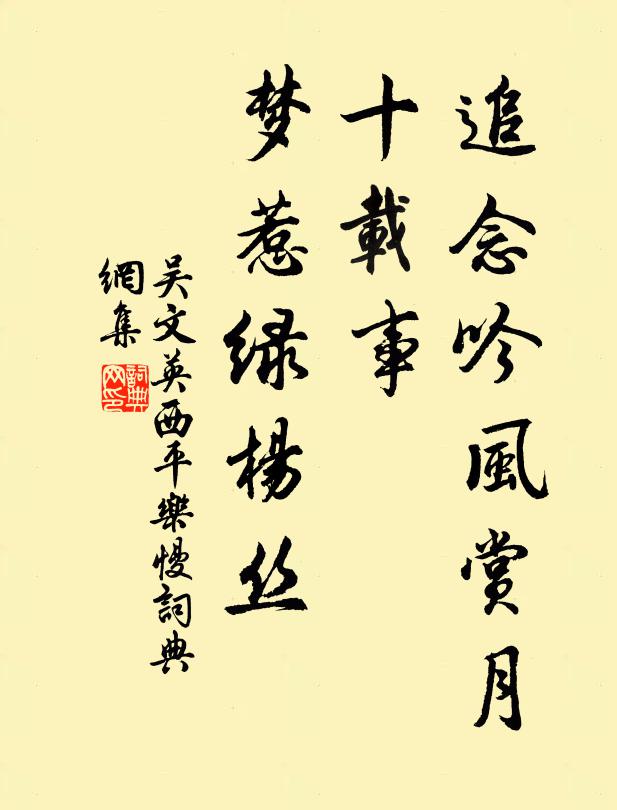 追念吟風賞月
十載事
梦惹绿楊丝
吴文英西平樂慢詞典
網集
詞典
网印